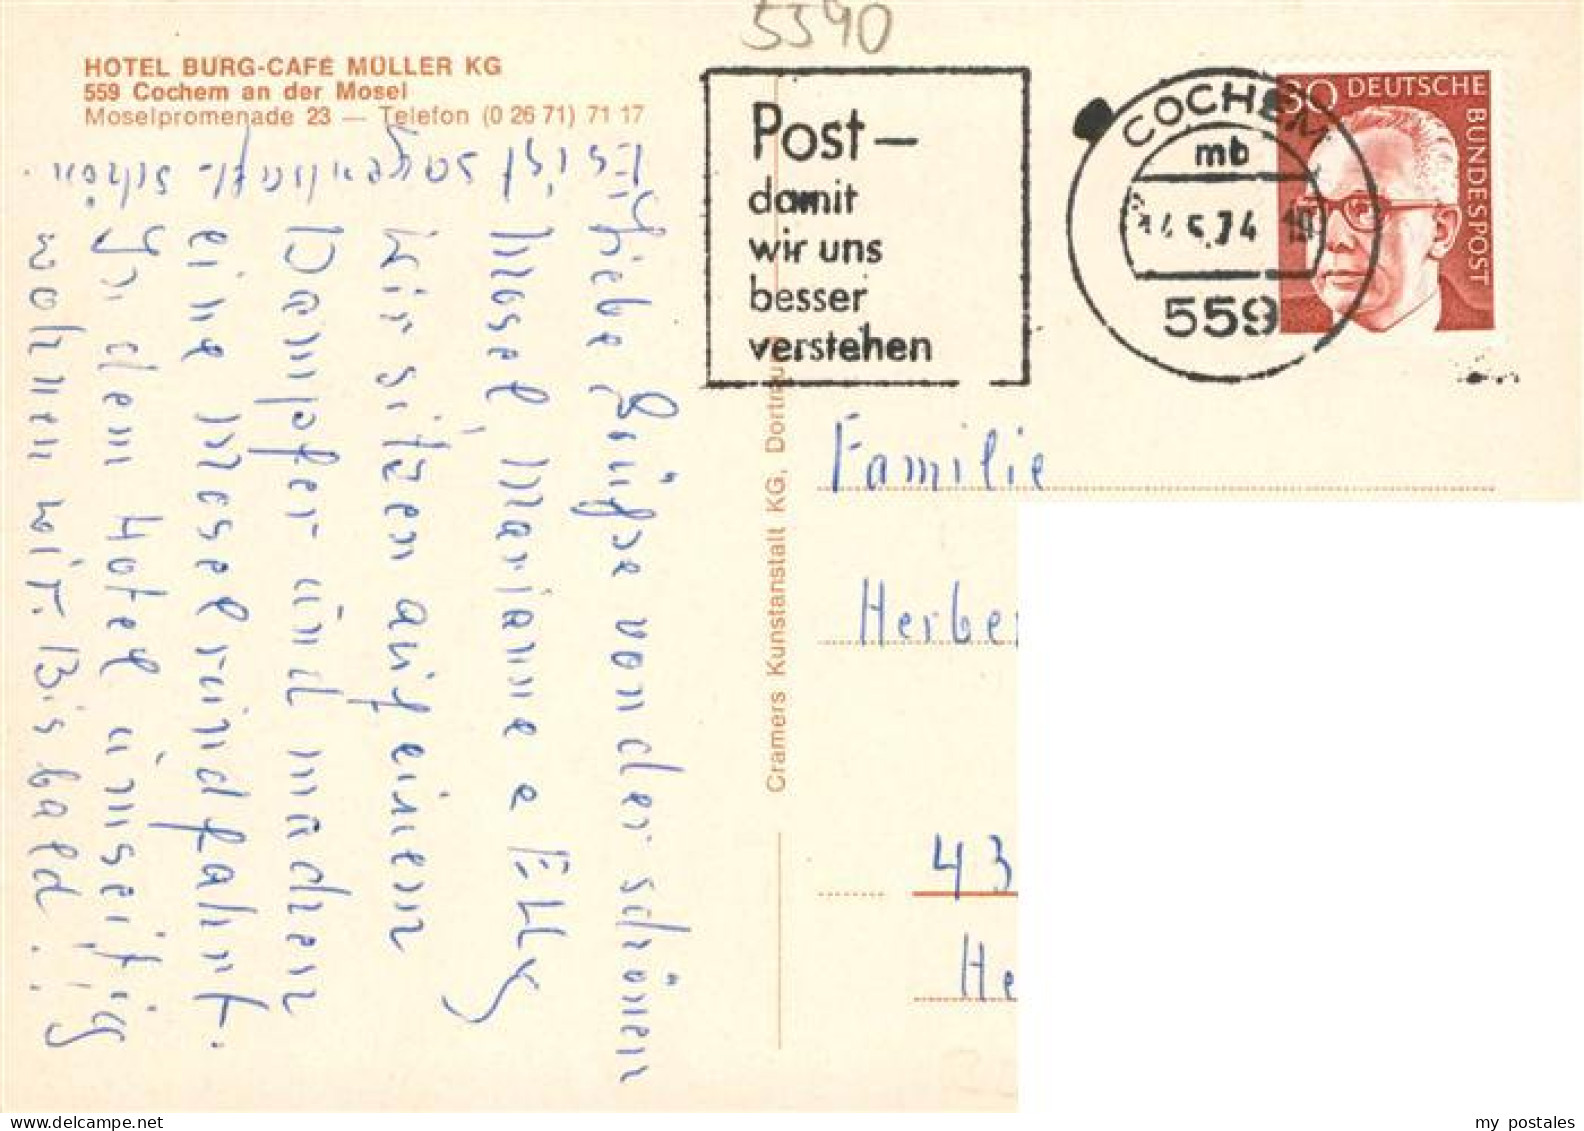 5590
HOTEL BURG-CAFÉ MÜLLER KG
559 Cochem an der Mosel
Moselpromenade 23 — Telefon (0 26 71) 71 17
Post –
damit
wir uns
besser
verstehen
COCHEM
mb
14.5.74 19
559
30 DEUTSCHE
BUNDESPOST
Liebe Grüße von der schönen
Mosel, Marianne e Elly
Wir sitzen auf einem
Dampfer und machen
eine Moselrundfahrt.
In dem Hotel umseitig
wohnen wir. Bis bald!
Es ist sagenhaft schön.
Cramers Kunstanstalt KG, Dortmund
Familie
Herber
43
He
my postales